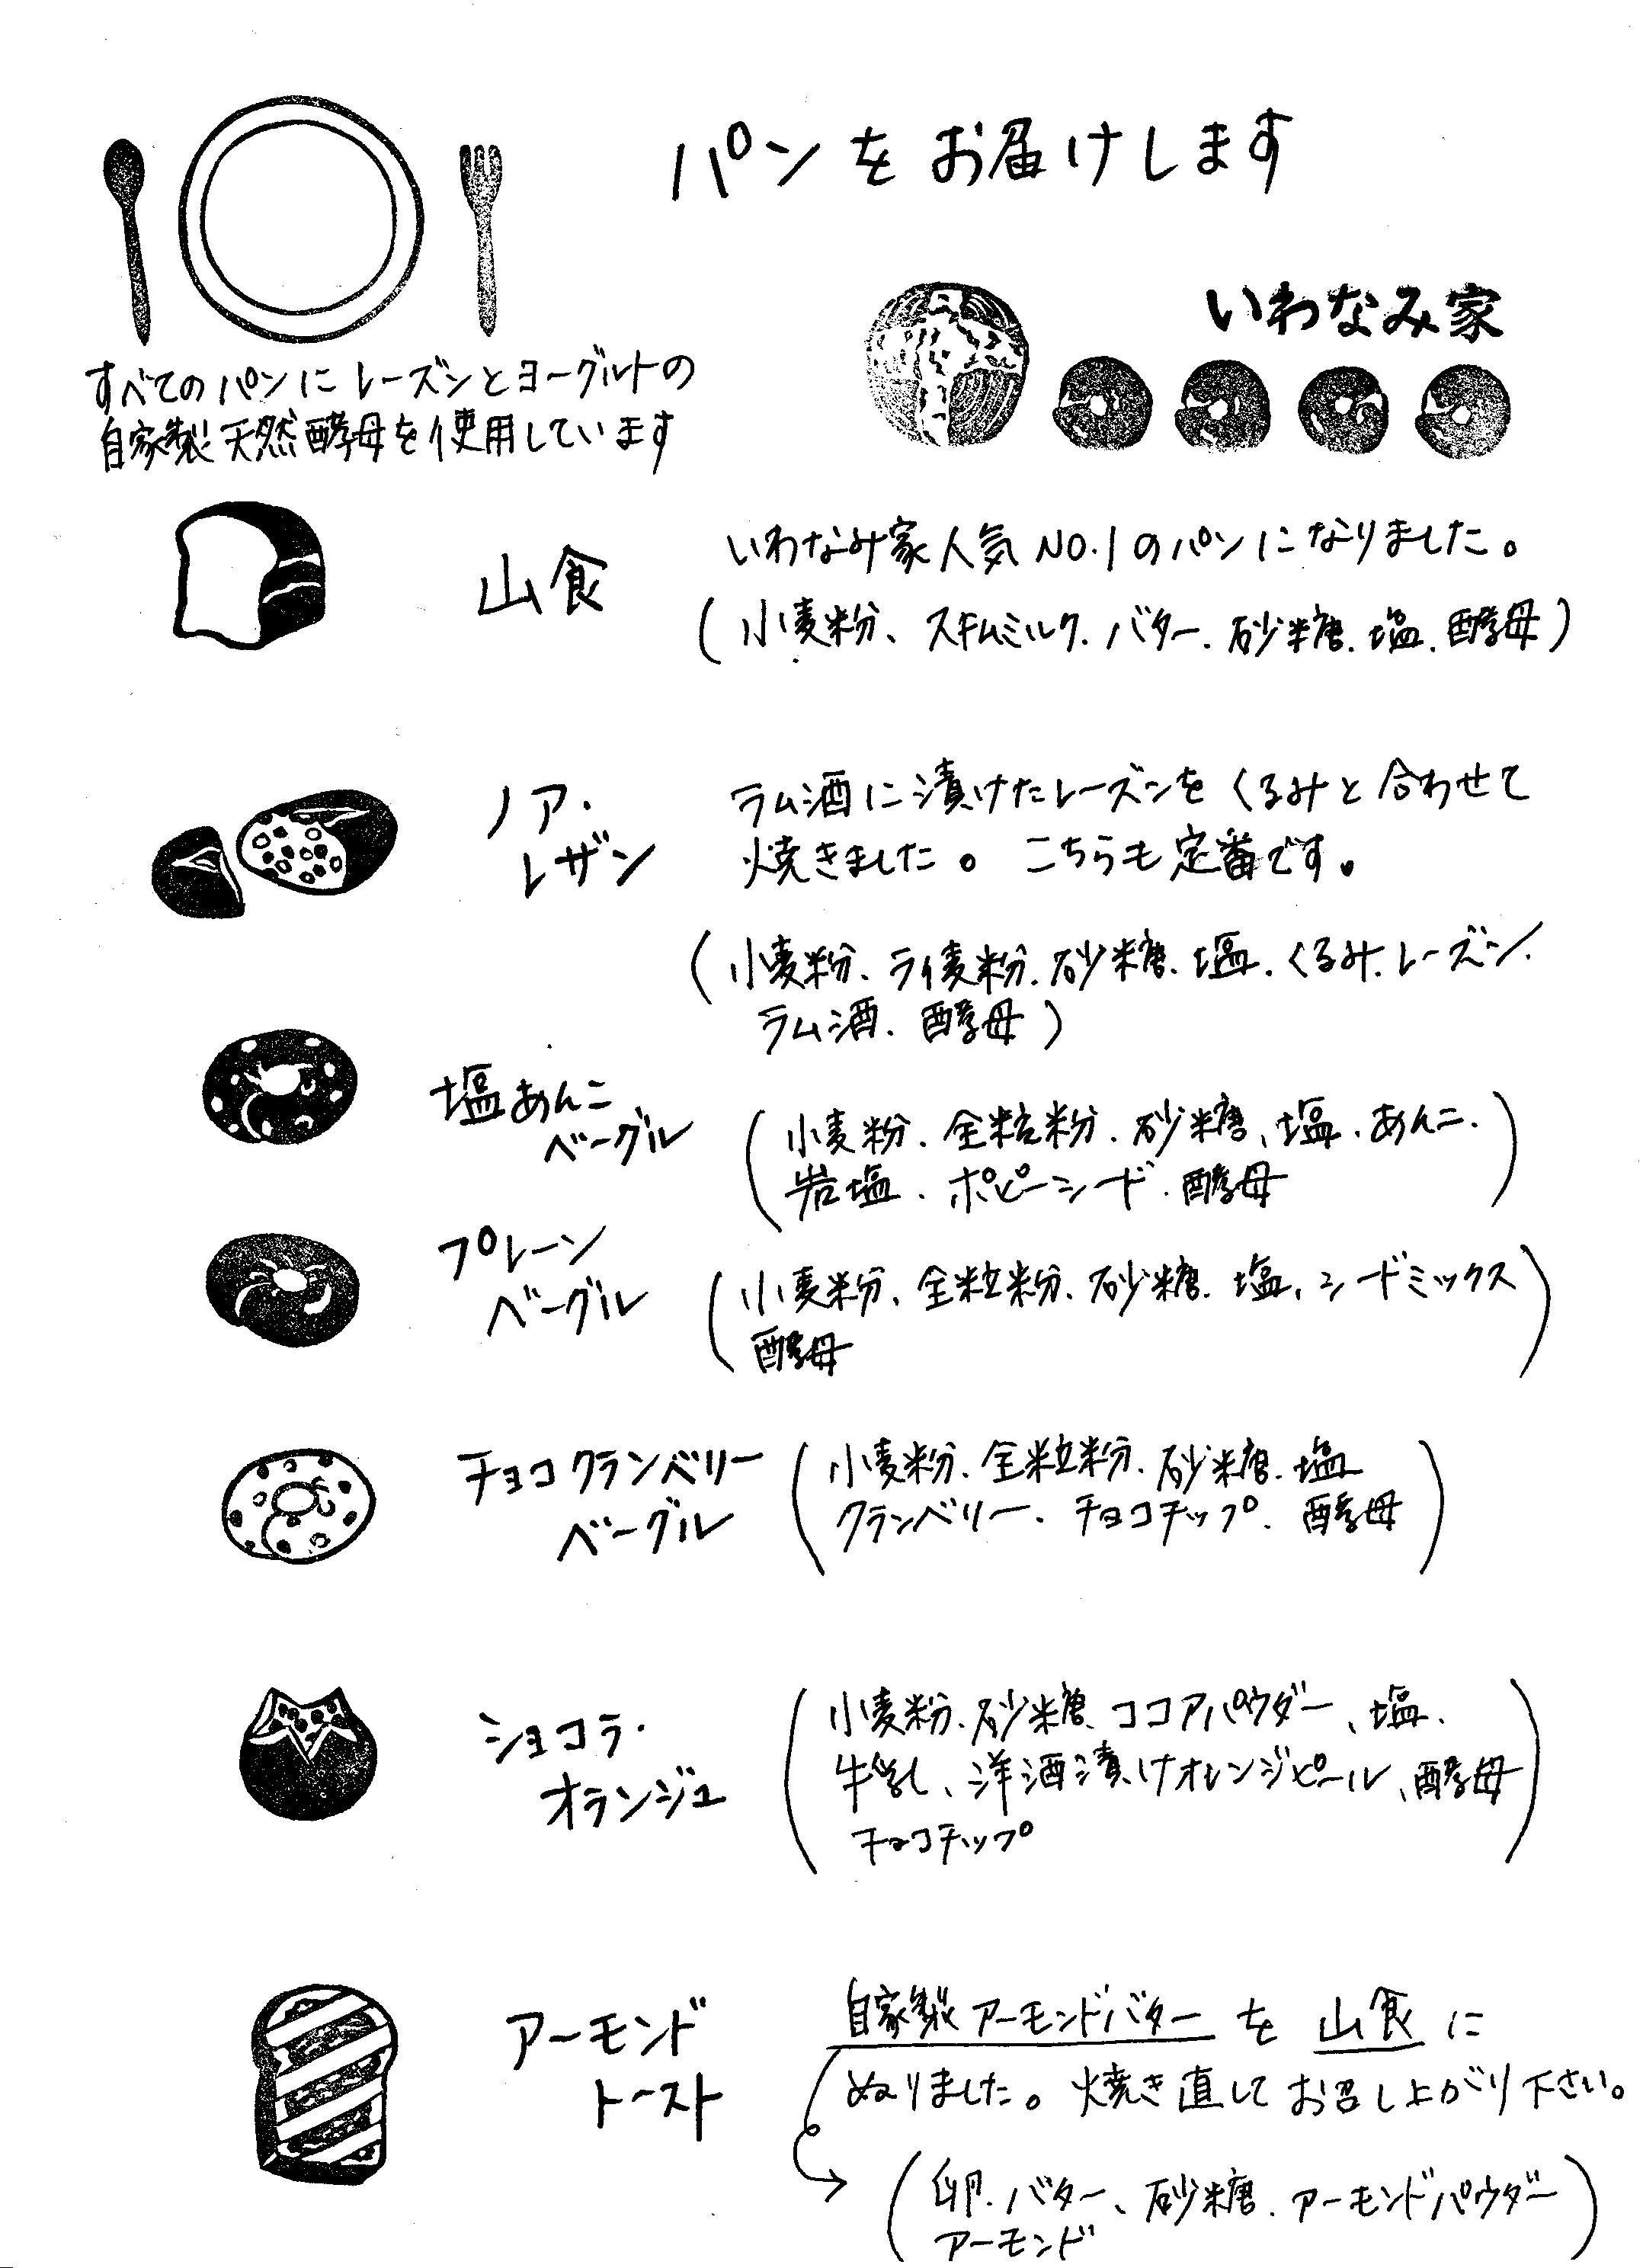 パンをお届けします
いわなみ家
すべてのパンにレーズンとヨーグルトの
自家製天然酵母を使用しています
山食
いわなみ家人気NO.1のパンになりました。
(小麦粉、スキムミルク、バター、砂糖、塩、酵母)
ノア・
レザン
ラム酒に漬けたレーズンをくるみと合わせて
焼きました。こちらも定番です。
(小麦粉、ライ麦粉、砂糖、塩、くるみ、レーズン、
ラム酒、酵母)
塩あんこ
ベーグル
(小麦粉、全粒粉、砂糖、塩、あんこ、
岩塩、ポピーシード、酵母)
プレーン
ベーグル
(小麦粉、全粒粉、砂糖、塩、シードミックス
酵母)
チョコクランベリー
ベーグル
(小麦粉、全粒粉、砂糖、塩
クランベリー、チョコチップ、酵母)
ショコラ・
オランジュ
(小麦粉、砂糖、ココアパウダー、塩、
牛乳、洋酒漬けオレンジピール、酵母
チョコチップ)
アーモンド
トースト
自家製アーモンドバターを山食に
ぬりました。焼き直してお召し上がり下さい。
(卵、バター、砂糖、アーモンドパウダー
アーモンド)